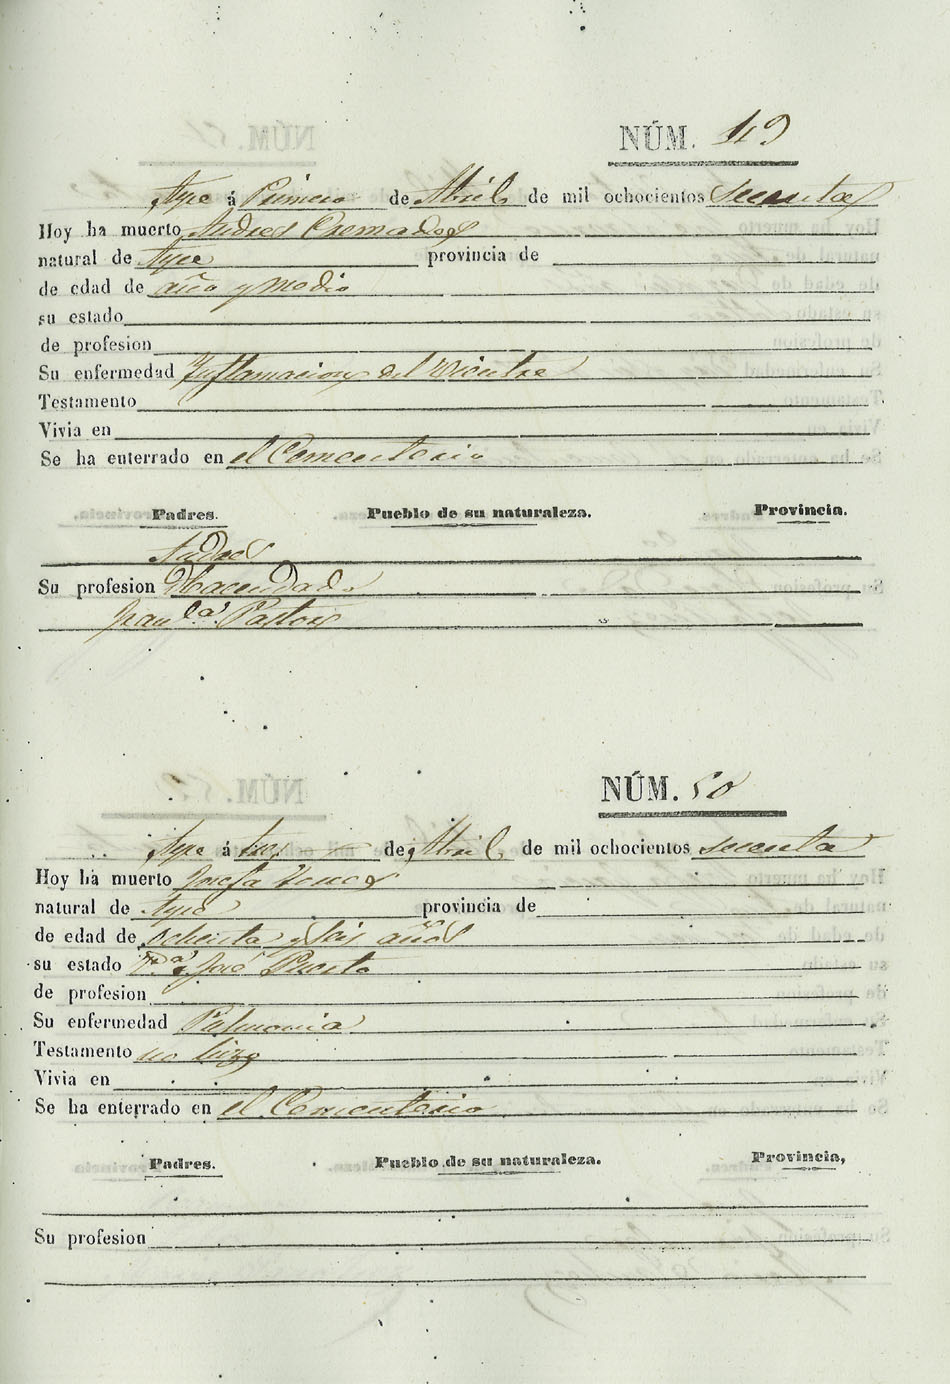 NÚM. 49
Aspe á Primero de Abril de mil ochocientos sesenta
Hoy ha muerto Andres Cremades
natural de Aspe provincia de
de edad de año y medio
su estado
de profesion
Su enfermedad Inflamacion del vientre
Testamento
Vivia en
Se ha enterrado en el Cementerio
Padres. Pueblo de su naturaleza. Provincia.
Andres
Su profesion Hacendado
Fran.ca Pastor
NÚM. 50
Aspe á de Abril de mil ochocientos sesenta
Hoy ha muerto Josefa
natural de Aspe provincia de
de edad de ochenta y seis años
su estado V.da José
de profesion
Su enfermedad Pulmonia
Testamento no hizo
Vivia en
Se ha enterrado en el Cementerio
Padres. Pueblo de su naturaleza. Provincia,
Su profesion